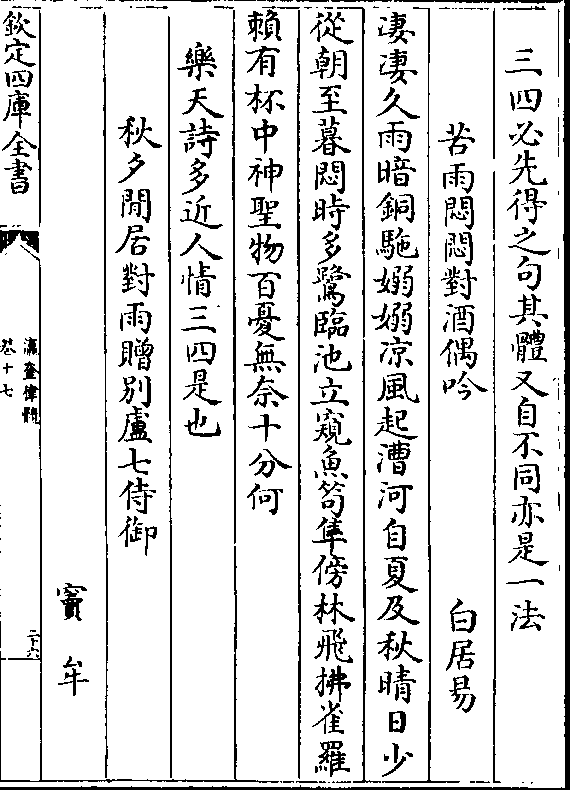 三四必先得之句其體又自不同亦是一法
苦雨悶悶對酒偶吟　白居易
凄凄久雨暗銅駞嫋嫋凉風起漕河自夏及秋晴日少
從朝至暮悶時多鷺臨池立窺魚笱隼傍林飛拂雀羅
賴有杯中神聖物百憂無奈十分何
樂天詩多近人情三四是也
秋夕閒居對雨贈别盧七侍御
竇牟
欽定四庫全書
瀛奎律髓
卷十七
二十六